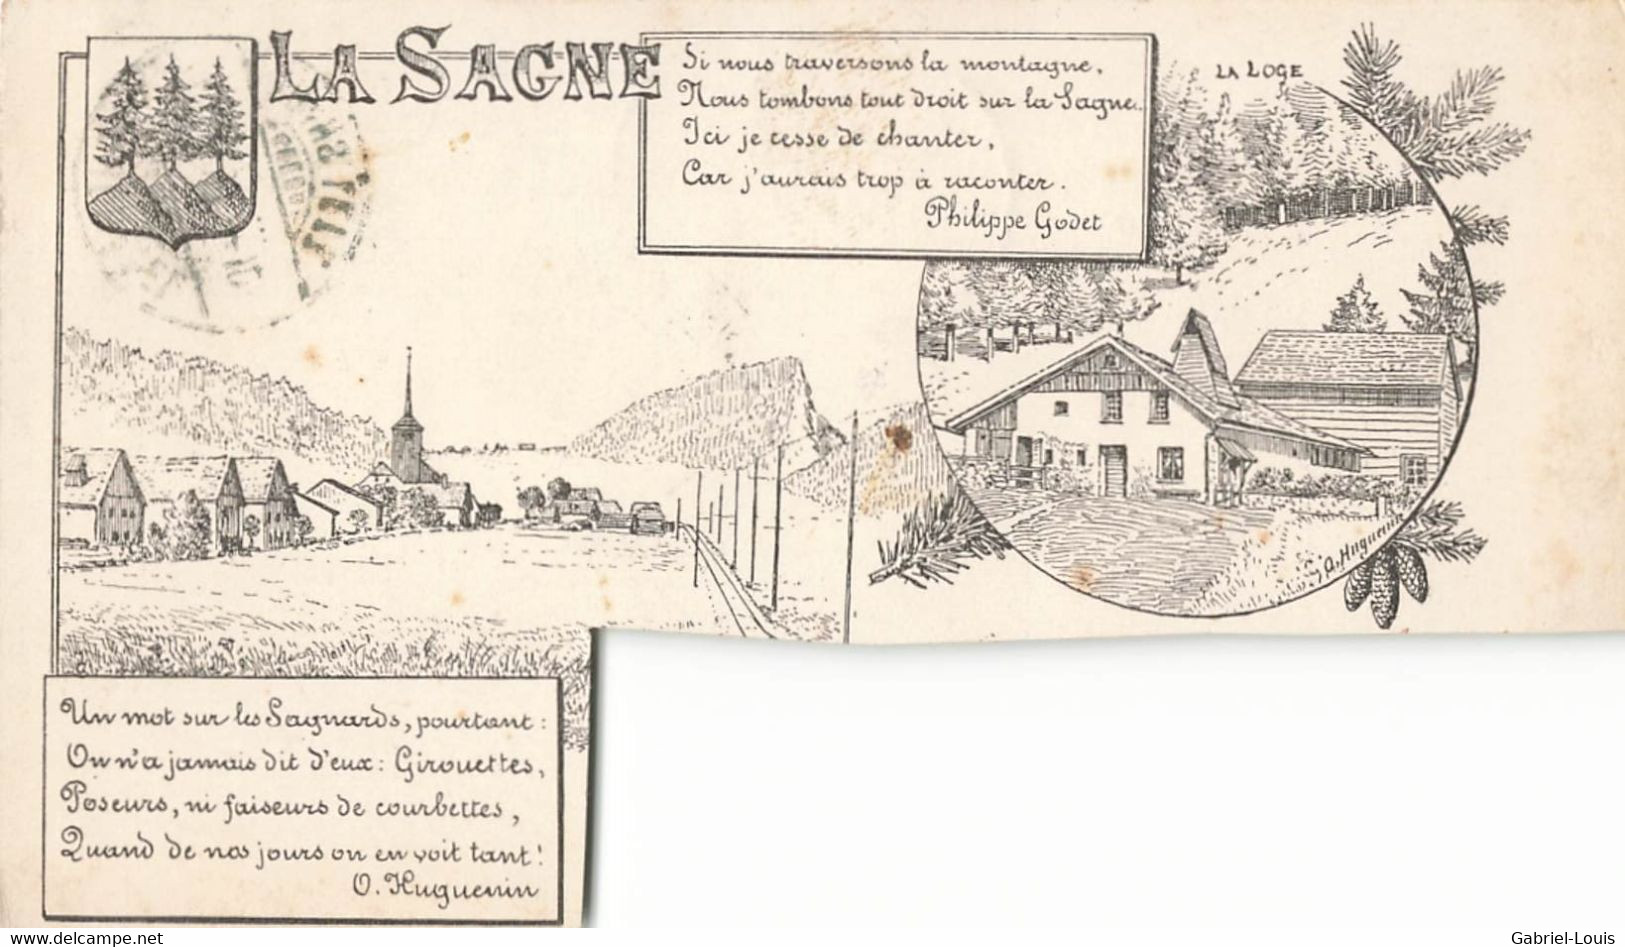 LA SAGNE
Si nous traversons la montagne,
Nous tombons tout droit sur la Sagne.
Ici je cesse de chanter,
Car j'aurais trop à raconter.
Philippe Godet
LA LOGE
O. Huguenin
Un mot sur les Sagnards, pourtant:
On n'a jamais dit d'eux: Girouettes,
Poseurs, ni faiseurs de courbettes,
Quand de nos jours on en voit tant!
O. Huguenin
www.delcampe.net
Gabriel-Louis